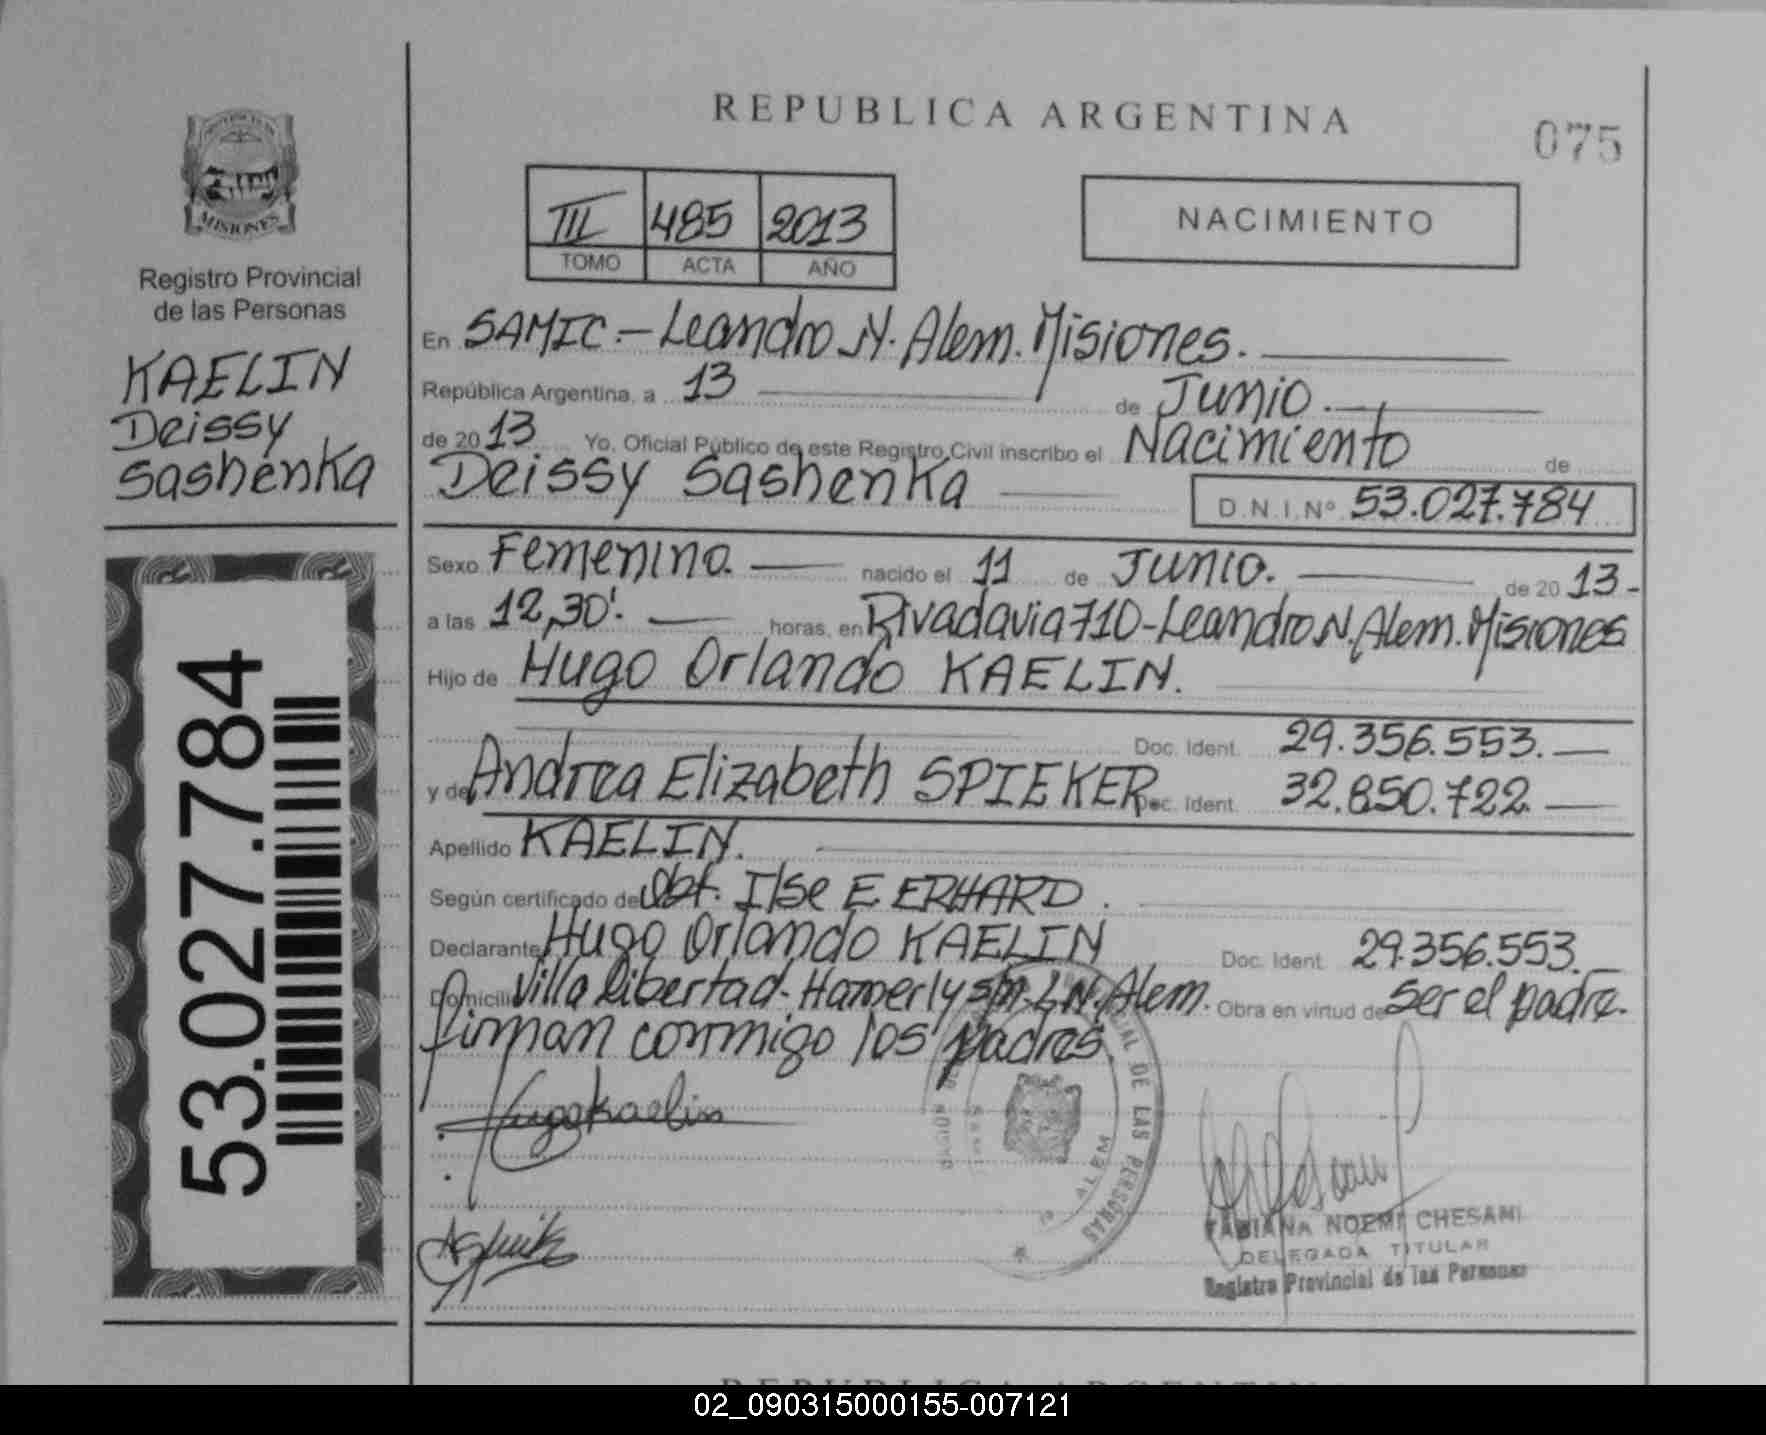 REPUBLICA ARGENTINA
075
III 485 2013
TOMO ACTA AÑO
NACIMIENTO
MISIONES
Registro Provincial
de las Personas
KAELIN
Deissy
Sashenka
53.027.784
En SAMIC.- Leandro N. Alem. Misiones.
República Argentina, a 13 de Junio.
de 2013 Yo, Oficial Público de este Registro Civil inscribo el Nacimiento de
Deissy Sashenka D.N.I.Nº 53.027.784
Sexo Femenino. nacido el 11 de Junio. de 2013-
a las 12,30'. horas, en Rivadavia 710-Leandro N. Alem. Misiones
Hijo de Hugo Orlando KAELIN.
Doc. Ident. 29.356.553.
y de Andrea Elizabeth SPIEKER Doc. Ident. 32.850.722
Apellido KAELIN.
Según certificado de Obt. Ilse E. ERHARD.
Declarante Hugo Orlando KAELIN Doc. Ident. 29.356.553.
Domicilio Villa Libertad-Hamerly s/n. L.N. Alem. Obra en virtud de Ser el padre.
firman conmigo los padres.
Hugo Kaelin
DE LAS PERSONAS
ALEM
FABIANA NOEMI CHESANI
DELEGADA TITULAR
Registro Provincial de las Personas
REPUBLICA ARGENTINA
02_090315000155-007121